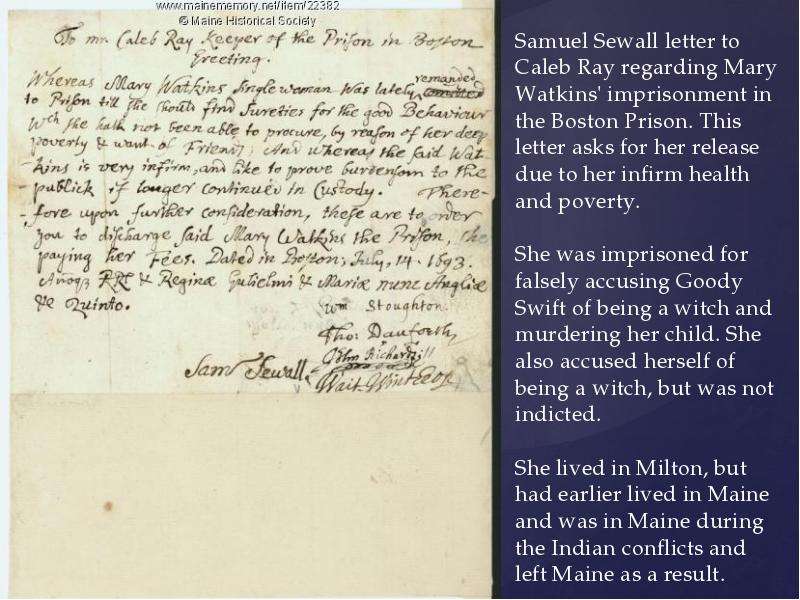 www.mainememory.net/item/22382
© Maine Historical Society
To mr. Caleb Ray Keeper of the Prison in Boston
Greeting.
Whereas Mary Watkins Single woman was lately remanded
to Prison till she should find Sureties for the good Behaviour
wch she hath not been able to procure, by reason of her deep
poverty & want of Friends; And whereas the said Wat-
kins is very infirm, and like to prove burdensom to the
publick if longer continued in Custody. There-
fore upon further consideration, these are to order
you to discharge said Mary Watkins the Prison, she
paying her Fees. Dated in Boston, July, 14. 1693.
RRs & Reginæ Gulielmi & Mariæ nunc Angliæ
&c Quinto.
Wm Stoughton
Tho: Danforth
John Richards
Sam Sewall
Wait Winthrop
Samuel Sewall letter to
Caleb Ray regarding Mary
Watkins' imprisonment in
the Boston Prison. This
letter asks for her release
due to her infirm health
and poverty.
She was imprisoned for
falsely accusing Goody
Swift of being a witch and
murdering her child. She
also accused herself of
being a witch, but was not
indicted.
She lived in Milton, but
had earlier lived in Maine
and was in Maine during
the Indian conflicts and
left Maine as a result.